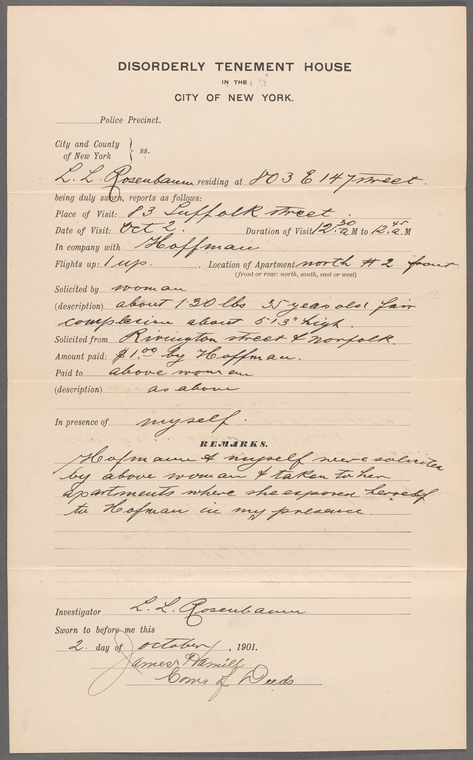 DISORDERLY TENEMENT HOUSE
IN THE
CITY OF NEW YORK.
Police Precinct.
City and County
of New York } ss.
L. L. Rosenbaum residing at 803 E 147 street.
being duly sworn, reports as follows:
Place of Visit: 83 Suffolk street.
Date of Visit: Oct 2. Duration of Visit 12.30 a M to 12.45 a. M
In company with Hoffman
Flights up: 1 up. Location of Apartment north # 2 front
(front or rear: north, south, east or west)
Solicited by woman
(description) about 130 lbs 35 years old fair
complexion about 5'3" high.
Solicited from Rivington street & Norfolk.
Amount paid: $1.00 by Hoffman.
Paid to above woman
(description) as above
In presence of myself.
REMARKS.
Hofmann & myself were solicited
by above woman & taken to her
apartments where she exposed herself
to Hofman in my presence.
Investigator L. L. Rosenbaum
Sworn to before me this
2 day of October, 1901.
James Hamill
Coms of Deeds